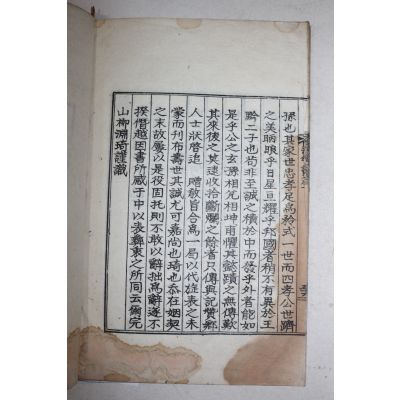 孫也其家世忠孝足爲矜式一世而四孝公世躋
之美昞眼乎日星亘耀乎邦國者稍不有異於王
黔二子也苟非至誠之積於中而發乎外者能如
是乎公之玄孫相允相坤甫懼其懿蹟之無傳歎
其來後之莫逮收拾斷爛之餘者只傳與記贊鄕
人士狀啓追贈敎旨合爲一局以代旌表之未
蒙而刊布壽世其誠尤可嘉尚也琦也忝在姻契
之末故屬以是役固托則不敢以辭拙爲辭遂不
揆僭越因書所感于中以表彜衷之所同云爾完
山柳淵琦謹識